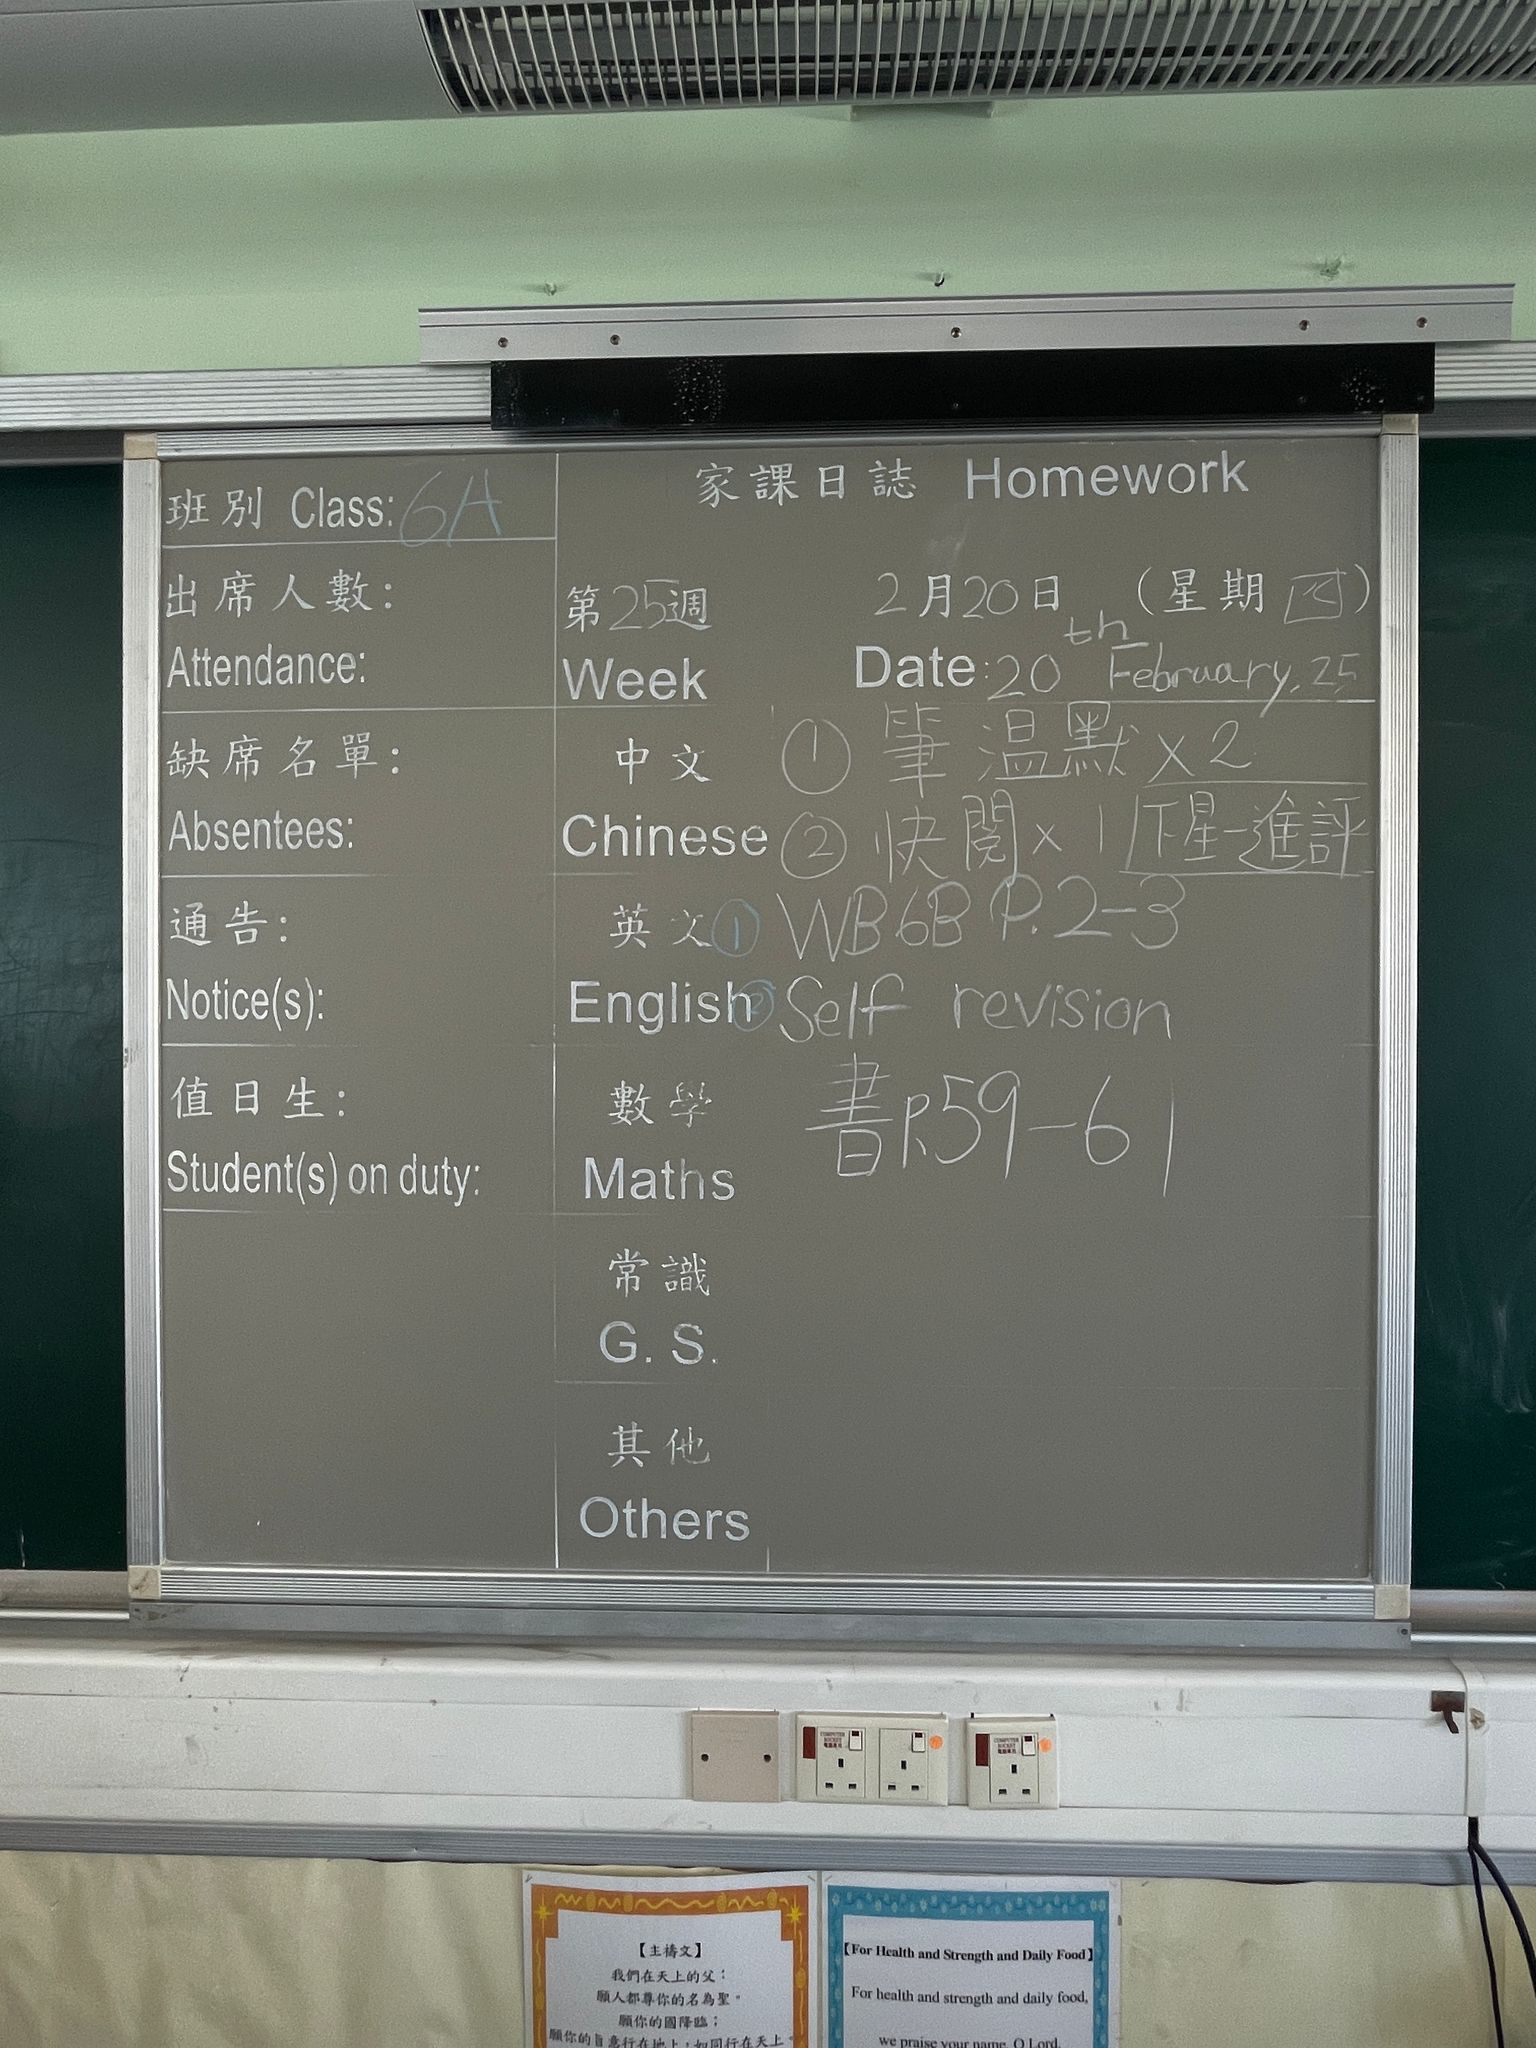 家課日誌 Homework
班別 Class: 6A
出席人數:
Attendance:
缺席名單:
Absentees:
通告:
Notice(s):
值日生:
Student(s) on duty:
第25週
Week
2月20日 (星期四)
Date: 20th February, 25
中文
Chinese
① 筆 溫默 x 2
② 快閱 x 1 下星一進評
英文
English
① WB 6B P. 2-3
② Self revision
數學
Maths
書P.59-61
常識
G. S.
其他
Others
COMPUTER
SOCKET
COMPUTER
SOCKET
【主禱文】
我們在天上的父：
願人都尊你的名為聖。
願你的國降臨；
願你的旨意行在地上，如同行在天上。
【For Health and Strength and Daily Food】
For health and strength and daily food,
we praise your name, O Lord.